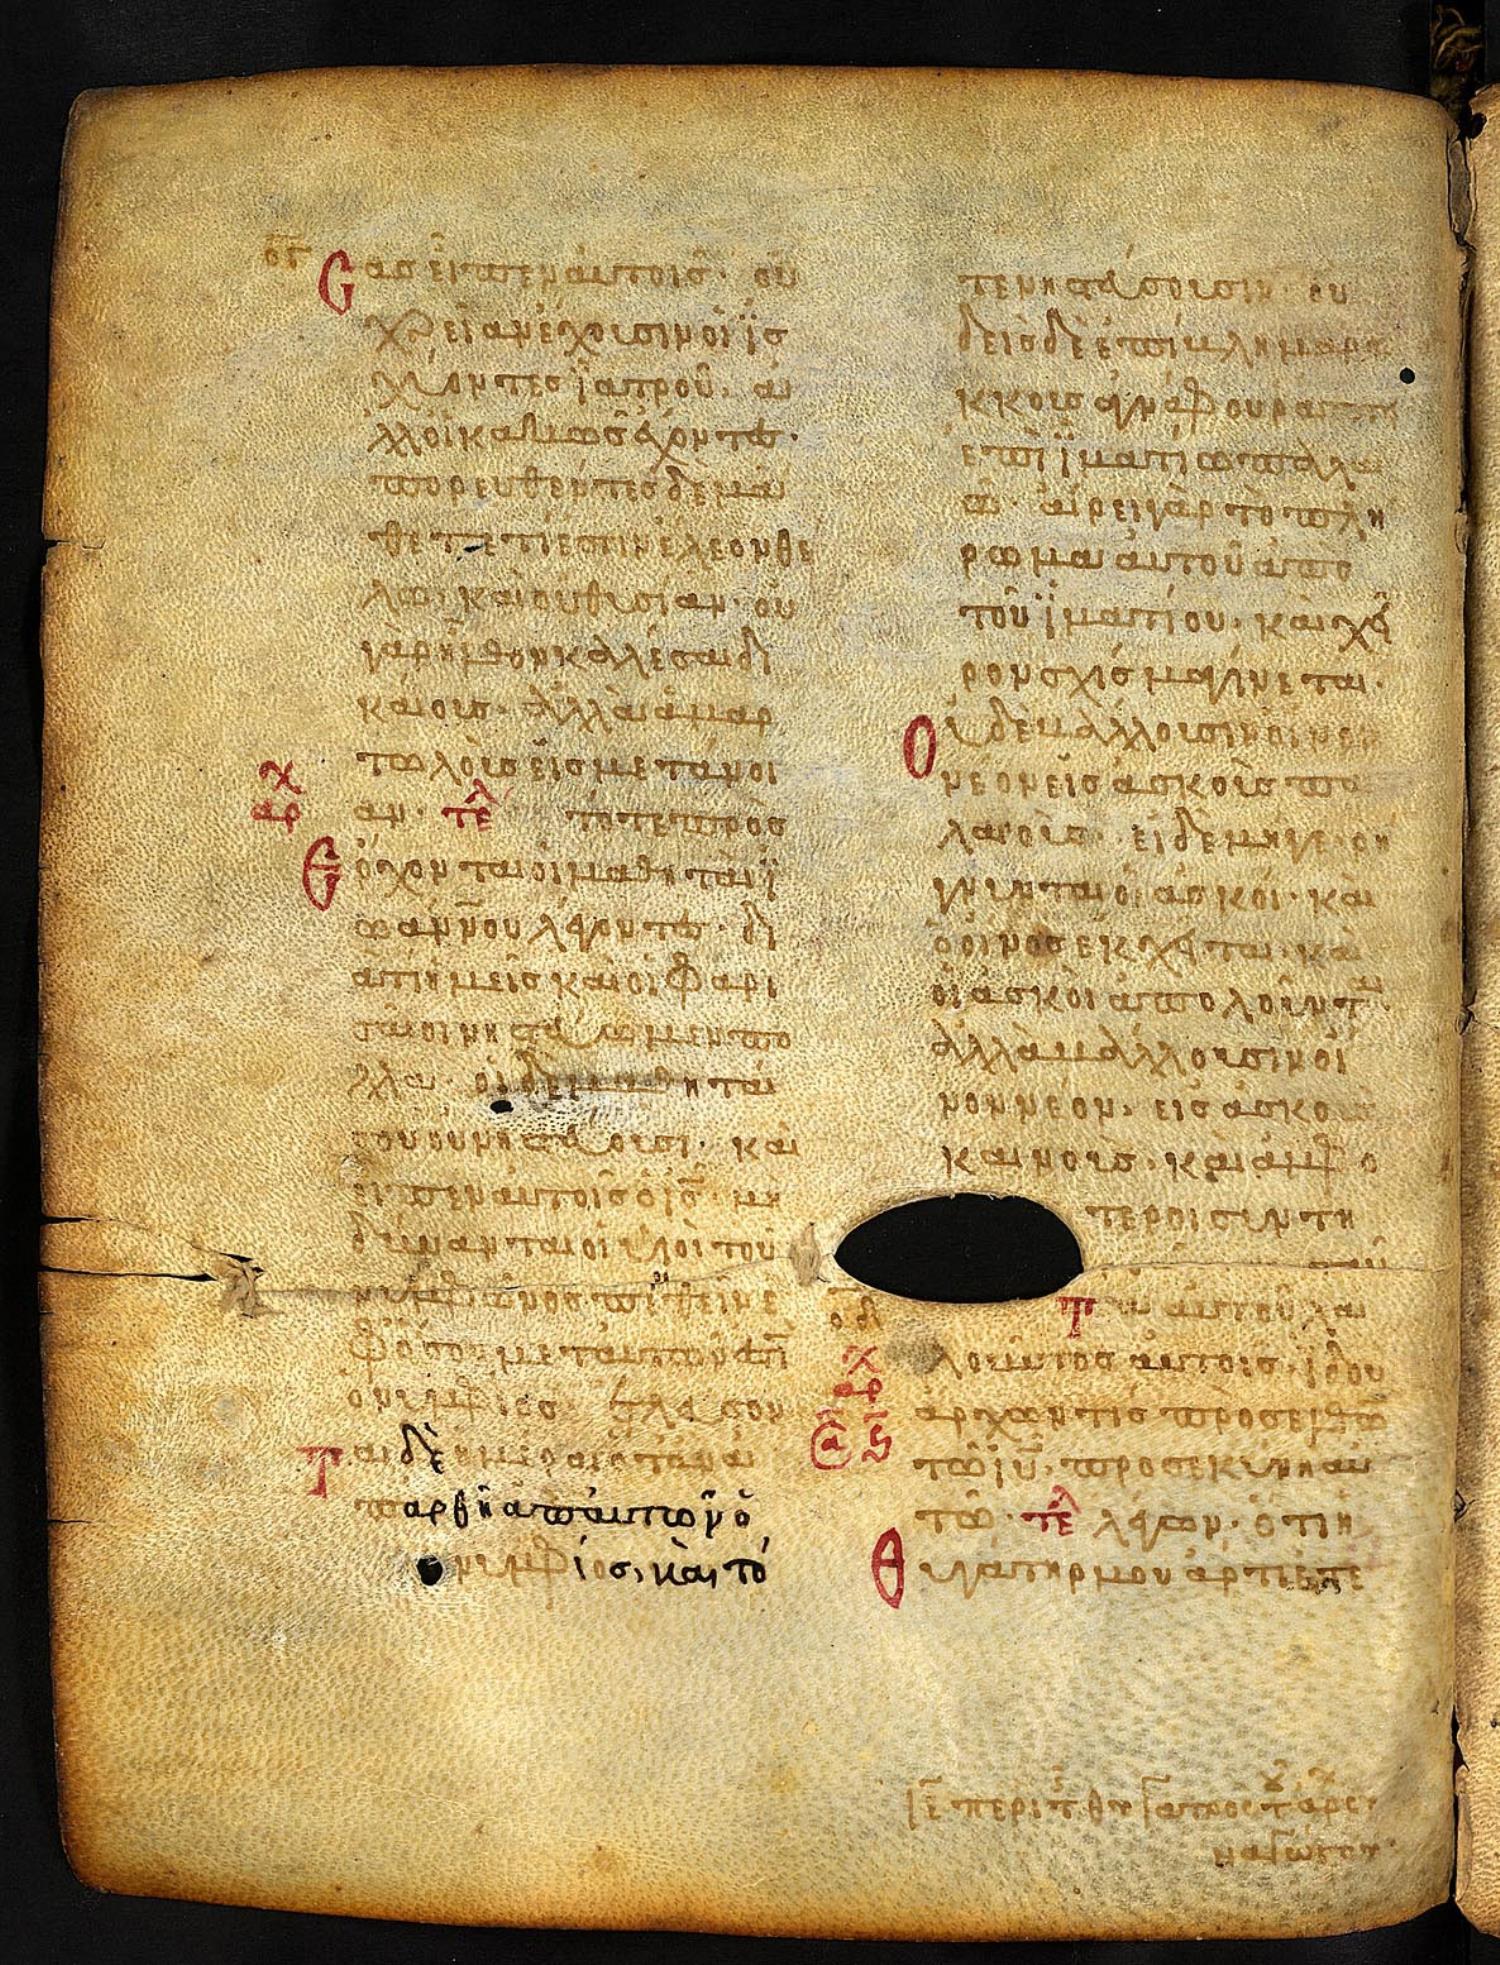 ογ
σας εἶπεν αὐτοῖς· οὐ
χρείαν ἔχουσιν οἱ ἰσ
χύοντες ἰατροῦ· ἀ
λλ οἱ κακῶς ἔχοντες·
πορευθέντες δὲ μά
θετε τί ἐστιν ἔλεον θέ
λω καὶ οὐ θυσίαν· οὐ
γὰρ ἦλθον καλέσαι δι
καίους· ἀλλὰ ἁμαρ
τωλοὺς εἰς μετάνοι
αν· τελ τότε προσ
αρχ
Ερχονται οἱ μαθηταὶ ἰ
ωάννου λέγοντες· δι
ατί ἡμεῖς καὶ οἱ φαρι
σαῖοι νηστεύωμεν πο
λλα· οἱ δὲ μαθηταί
σου οὐ νηστεύουσι· καὶ
εἶπεν αὐτοῖς ὁ ις· μὴ
δύνανται οἱ υἱοὶ τοῦ
νυμφῶνος πενθεῖν ἐ
φ ὅσον μετ αὐτῶν ἐστι
ὁ νυμφίος· ἐλεύσον
Ται δὲ ἡμέραι ὅταν ἀ
παρθῆ ἀπ αὐτῶν ὁ
νυμφίος, καὶ τό
τε νηστεύσουσιν· ου
δεὶς δὲ ἐπιβάλλει
κκους ἀγνάφου
ἐπὶ ἱματίω παλαι
ῶ· αἴρει γὰρ τὸ πλή
ρωμα αὐτοῦ ἀπὸ
τοῦ ἱματίου· καὶ χεῖ
ρον σχίσμα γίνεται·
Οὐδὲ βάλλουσιν οἶνον
νέον εἰς ἀσκοὺς πα
λαιούς· εἰ δὲ μήγε ῥή
γνυνται οἱ ἀσκοί· καὶ
ὁ οἶνος ἐκχεῖται· καὶ
οἱ ἀσκοὶ ἀπολοῦνται·
ἀλλὰ βάλλουσιν οἶ
νον νέον· εἰς ἀσκοὺς
καινούς· καὶ ἀμφο
τεροι συντη
Ταῦτα αὐτοῦ λα
οδ
λοῦντος αὐτοῖς· ἰδοὺ
αρχ
ἄρχων τις προσελθὼν
τῶ ιυ· προσεκύνει αὐ
τῶ· τελ λέγων· ὅτι ἡ
Θυγάτηρ μου ἄρτι ἐτε
ιε περὶ τ θυγατρὸς τ ἀρχι